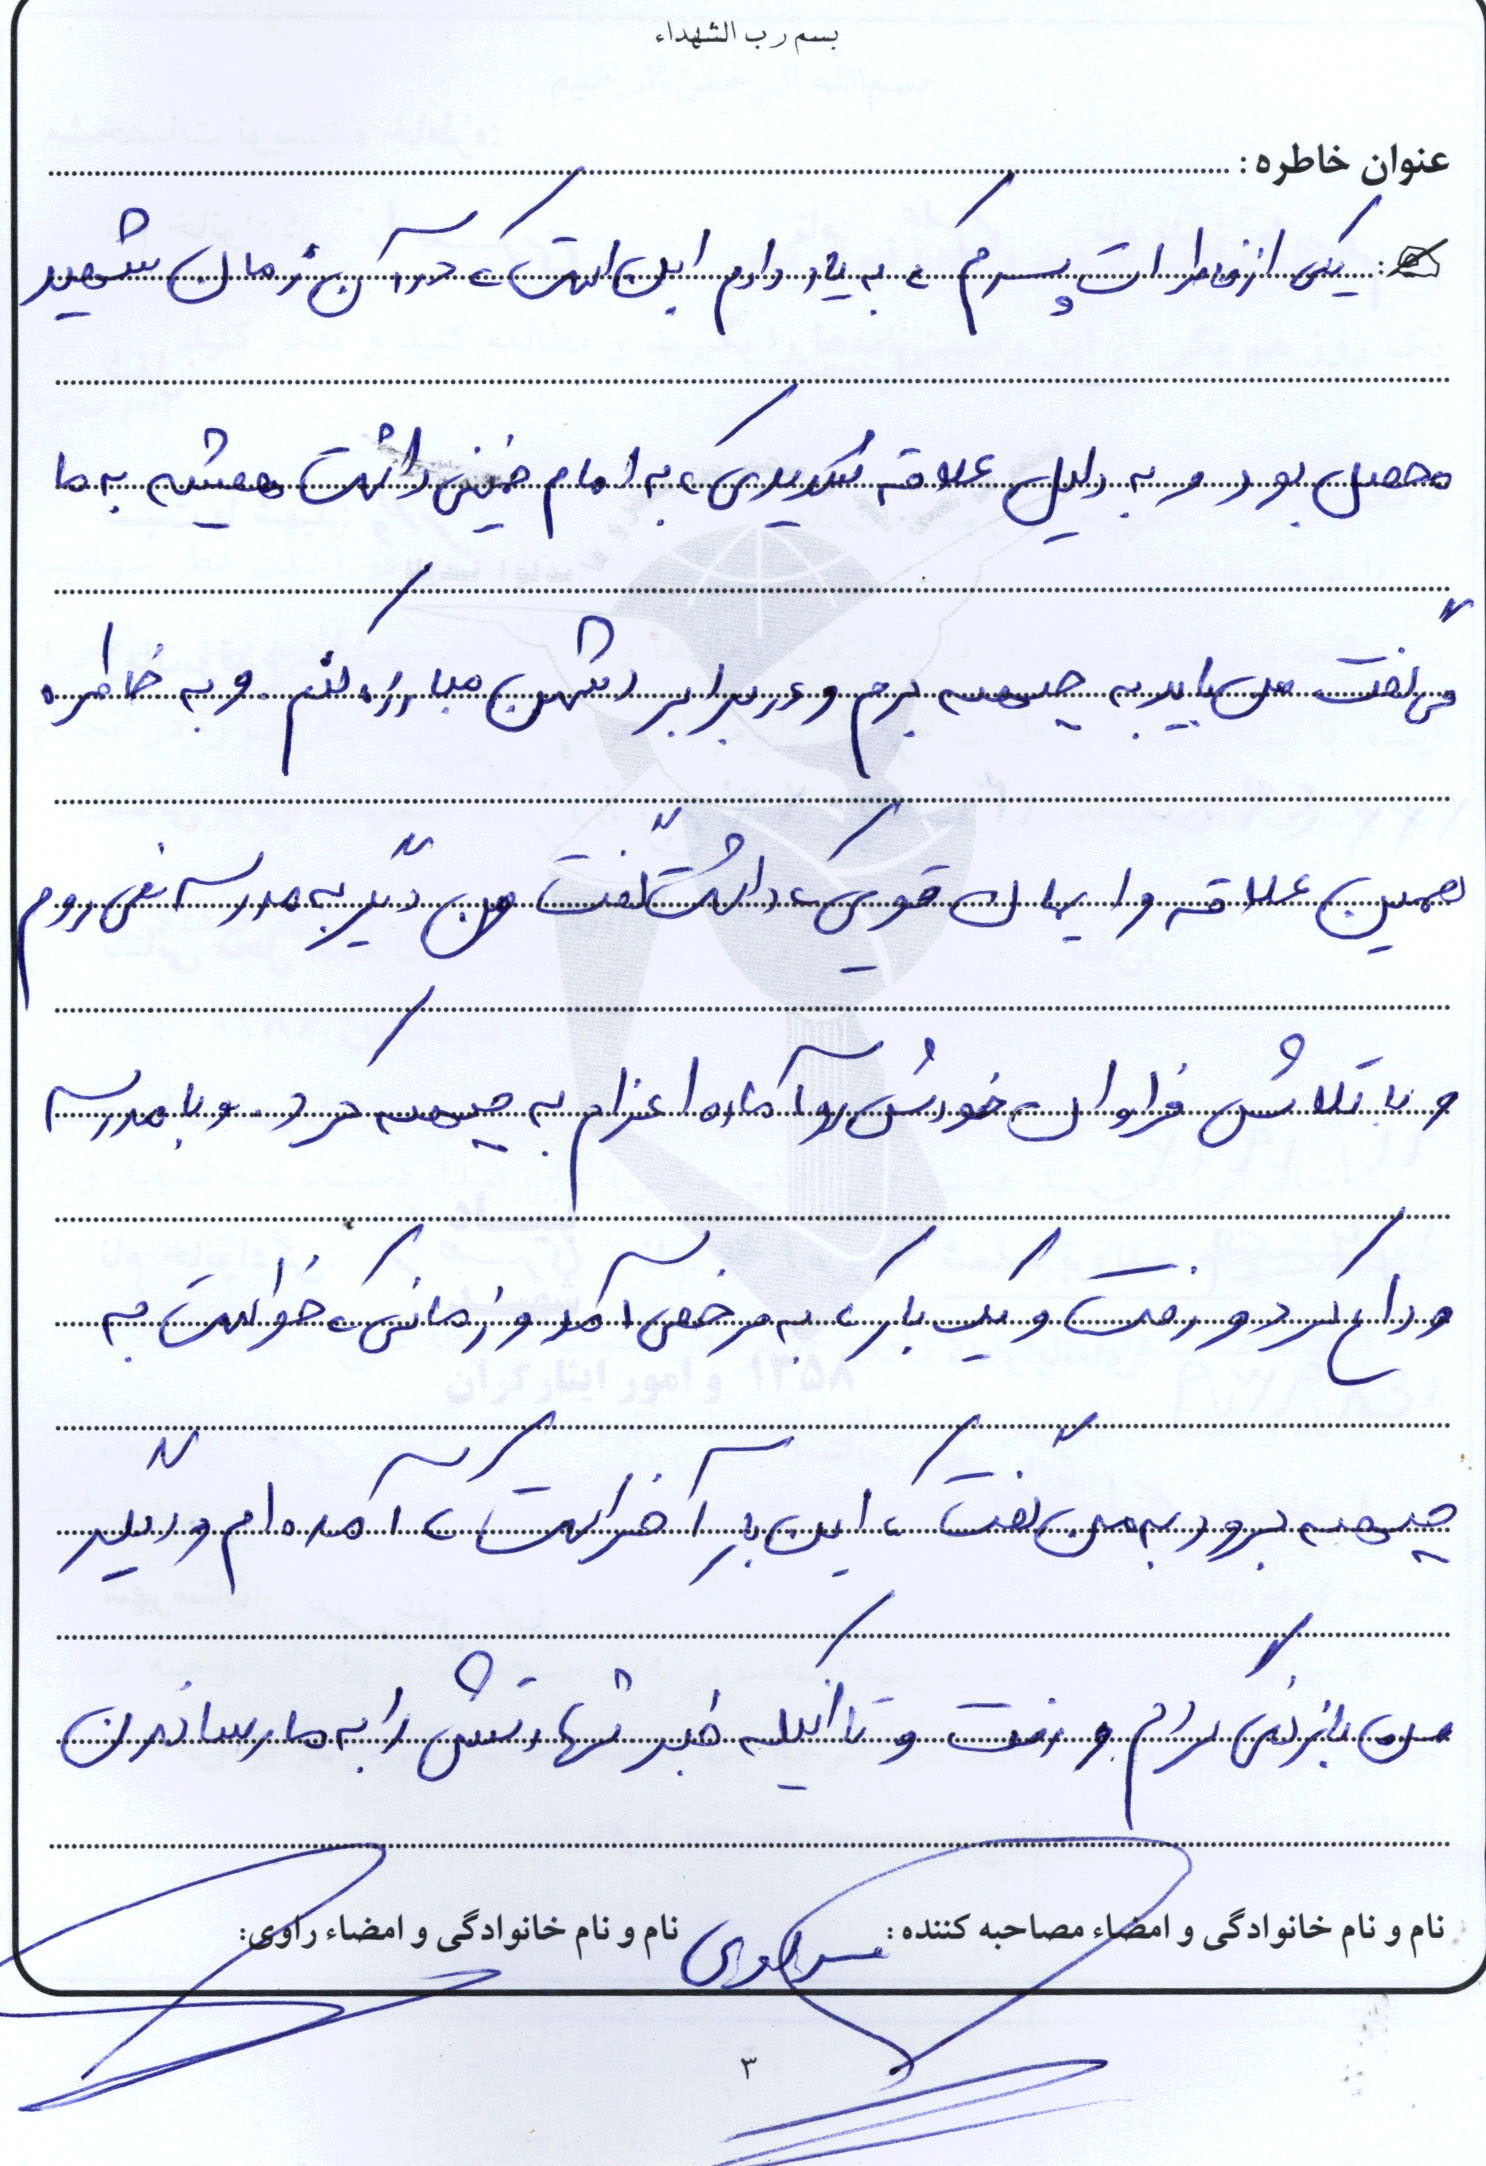 بسم رب الشهداء
عنوان خاطره :
یکی از خاطرات پسرم که به یاد دارم این است که در آن زمان شهید
محصل بود و به دلیل علاقه شدیدی که به امام خمینی داشت همیشه به ما
می گفت من باید به جبهه برم و در برابر دشمن مبارزه کنم. و به خاطره
همین علاقه و ایمان قوی که داشت گفت من دیگر به مدرسه نمی روم
و با تلاش فراوان خودش رو آماده اعزام به جبهه کرد. و با مدرسه
وداع کرد و رفت و یک بار که به مرخصی آمد و زمانی که خواست به
جبهه برود به من گفت که این بار آخر است که آمده ام و دیگر
من باز نمی گردم و رفت و تا اینکه خبر شهادتش را به ما رساندن
نام و نام خانوادگی و امضاء مصاحبه کننده :
نام و نام خانوادگی و امضاء راوی:
۳